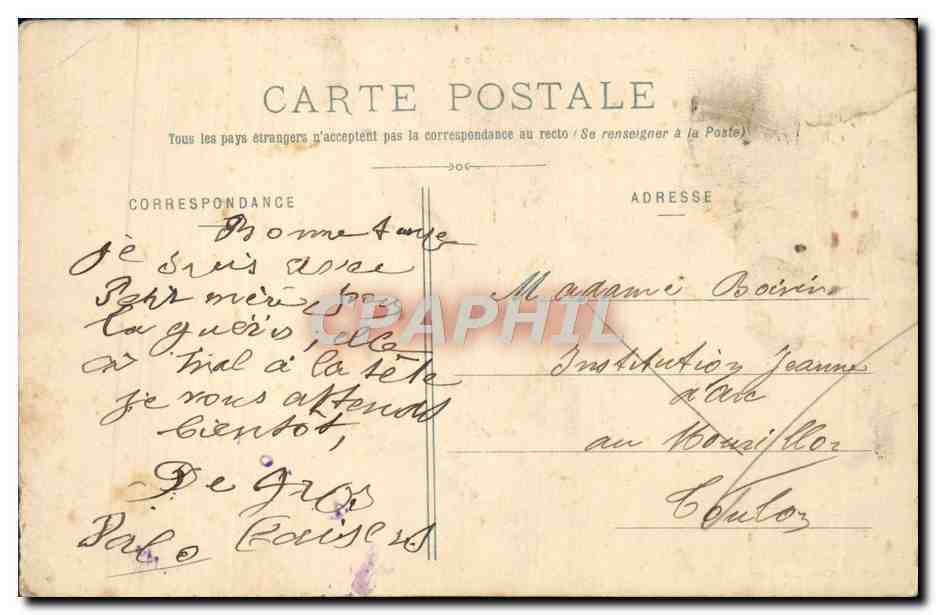 CARTE POSTALE
Tous les pays étrangers n'acceptent pas la correspondance au recto (Se renseigner à la Poste)
CORRESPONDANCE
Bonne
je suis avec
Petit mère,
la guéris, elle
à mal à la tête
je vous attends
bientot,
De gros
baisers
ADRESSE
Madame Boivin
Institution Jeanne
d'arc
au Mourillon
Toulon
CPAPHIL